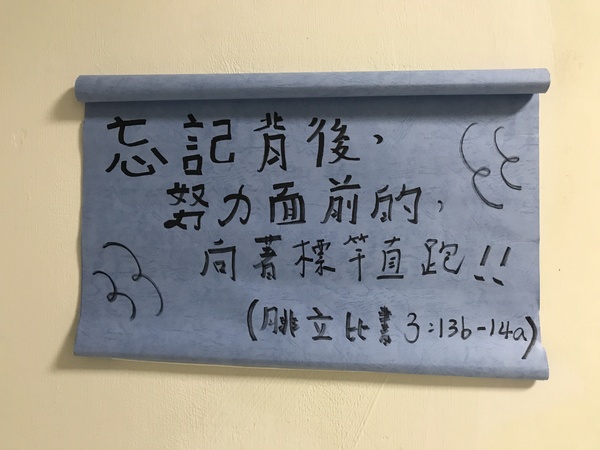 忘記背後，
努力面前的，
向著標竿直跑!!
(腓立比書 3:13b-14a)